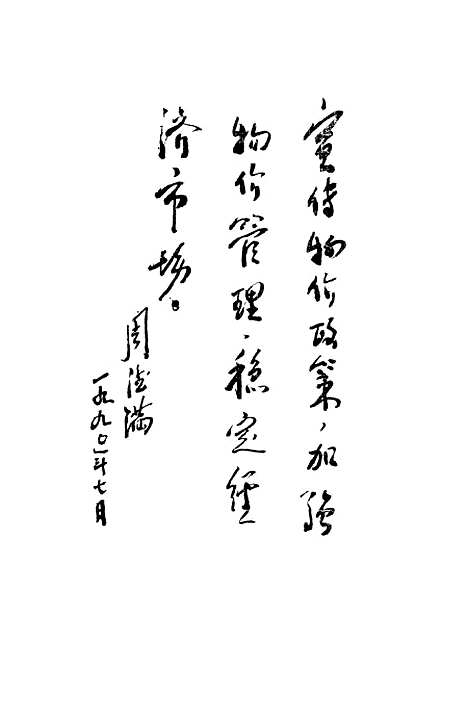 宣传物价政策,加强
物价管理,稳定经
济市场。
周德满
一九九〇年七月